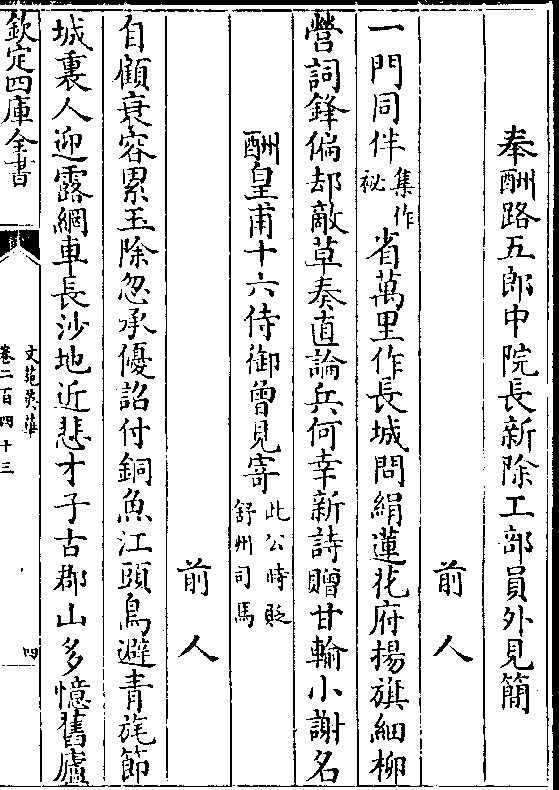 奉酬路五郎中院長新除工部員外見簡
前人
一門同伴集作祕省萬里作長城問絹蓮花府揚旗細柳
營詞鋒偏却敵草奏直論兵何幸新詩贈甘輸小謝名
酬皇甫十六侍御曾見寄此公時貶舒州司馬
前人
自顧衰容累玉除忽承優詔付銅魚江頭鳥避青旄節
城裏人迎露網車長沙地近悲才子古郡山多憶舊廬
欽定四庫全書
文苑英華
卷二百四十三
四